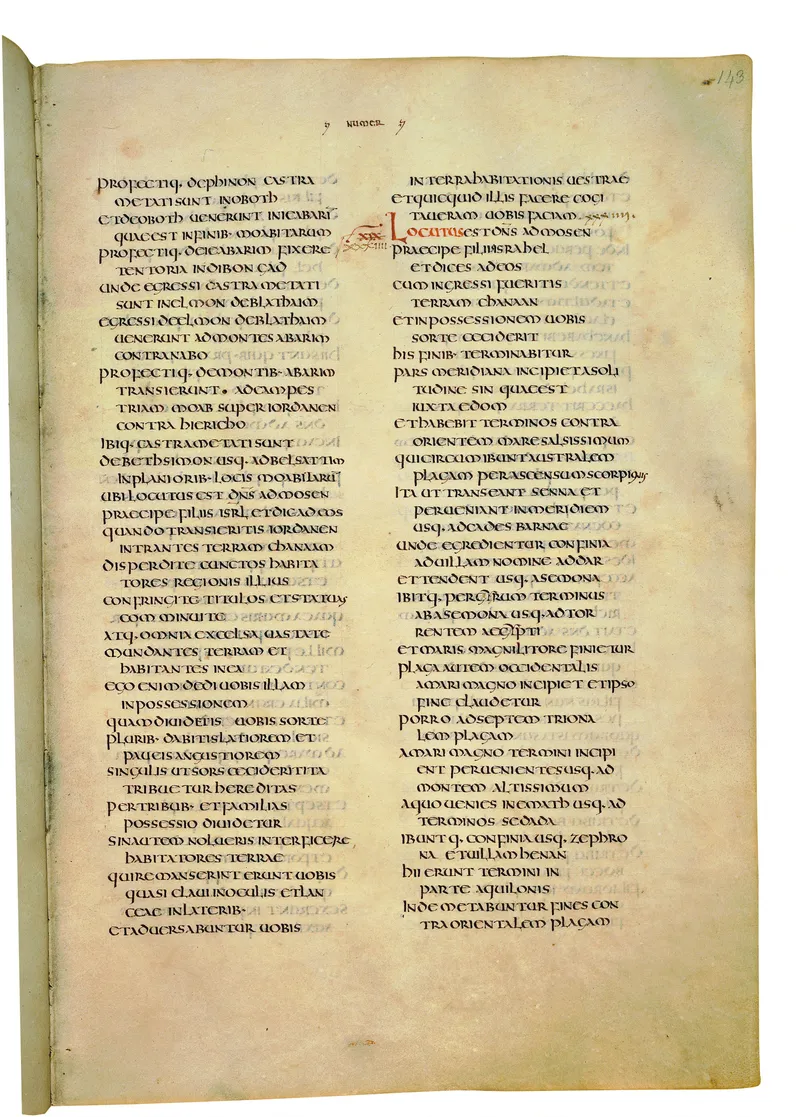 143
NUMER
PROFECTIQ· DEPHINON CASTRA
METATI SUNT INOBOTH
ETDEOBOTH UENERUNT INIEABARI
QUAEEST INFINIB· MOABITARUM
PROFECTIQ· DEIEABARIM FIXERE
TENTORIA INDIBON GAD
UNDE EGRESSI CASTRAMETATI
SUNT INELMON DEBLATHAIM
EGRESSI DEELMON DEBLATHAIM
UENERUNT ADMONTES ABARIM
CONTRANABO
PROFECTIQ· DEMONTIB· ABARIM
TRANSIERUNT· ADCAMPES
TRIAM MOAB SUPER IORDANEN
CONTRA HIERICHO
IBIQ· CASTRAMETATI SUNT
DEBETHSIMON USQ· ADBELSATTIM
INPLANIORIB· LOCIS MOABITARUM
UBI LOCUTUS EST DNS ADMOSEN
PRAECIPE FILIIS ISRL ETDIC ADEOS
QUANDO TRANSIERITIS IORDANEN
INTRANTES TERRAM CHANAAM
DISPERDITE CUNCTOS HABITA
TORES REGIONIS ILLIUS
CONFRINGITE TITULOS ETSTATUAS
COMMINUITE
ATQ· OMNIA EXCELSA UASTATE
MUNDANTES TERRAM ET
HABITANTES INEA
EGO ENIM DEDI UOBIS ILLAM
INPOSSESSIONEM
QUAM DIUIDETIS UOBIS SORTE
PLURIB· DABITIS LATIOREM ET
PAUCIS ANGUSTIOREM
SINGULIS UT SORS CECIDERIT ITA
TRIBUETUR HEREDITAS
PER TRIBUB· ET FAMILIAS
POSSESSIO DIUIDETUR
SIN AUTEM NOLUERIS INTERFICERE
HABITATORES TERRAE
QUI REMANSERINT ERUNT UOBIS
QUASI CLAUI INOCULIS ETLAN
CEAE INLATERIB·
ETADUERSABUNTUR UOBIS
IN TERRA HABITATIONIS UESTRAE
ETQUICQUID ILLIS FACERE COGI
TAUERAM UOBIS FACIAM
XIX LOCUTUS EST DNS ADMOSEN
PRAECIPE FILIIS ISRAHEL
ET DICES ADEOS
CUM INGRESSI FUERITIS
TERRAM CHANAAN
ETINPOSSESSIONEM UOBIS
SORTE CECIDERIT
HIS FINIB· TERMINABITUR
PARS MERIDIANA INCIPIET A SOLI
TUDINE SIN QUAE EST
IUXTA EDOM
ET HABEBIT TERMINOS CONTRA
ORIENTEM MARE SALSISSIMUM
QUI CIRCUMIBUNT AUSTRALEM
PLAGAM PER ASCENSUM SCORPIONIS
ITA UT TRANSEANT SENNA ET
PERUENIANT INMERIDIEM
USQ· ADCADES BARNAE
UNDE EGREDIENTUR CONFINIA
ADUILLAM NOMINE ADDAR
ET TENDENT USQ· ASEMONA
IBITQ· PER GYRUM TERMINUS
ABASEMONA USQ· ADTOR
RENTEM AEGYPTI
ET MARIS MAGNI LITORE FINIETUR
PLAGA AUTEM OCCIDENTALIS
AMARI MAGNO INCIPIET ET IPSO
FINE CLAUDETUR
PORRO ADSEPTEMTRIONA
LEM PLAGAM
AMARI MAGNO TERMINI INCIPI
ENT PERUENIENTES USQ· AD
MONTEM ALTISSIMUM
AQUO UENIES INEMATH USQ· AD
TERMINOS SEDADA
IBUNTQ· CONFINIA USQ· ZEPHRO
NA ETUILLAM HENAN
HII ERUNT TERMINI IN
PARTE AQUILONIS
INDE METABUNTUR FINES CON
TRA ORIENTALEM PLAGAM